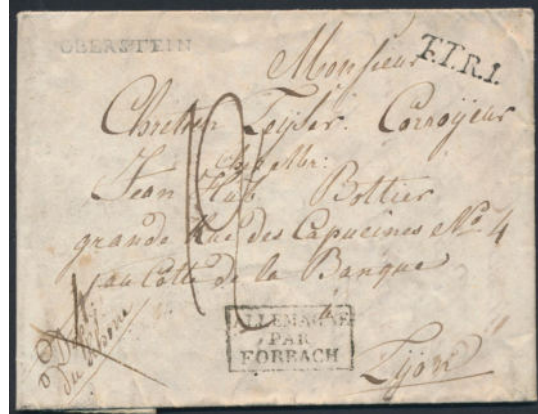 OBERSTEIN
T.T.R.1.
Monsieur
Chretien Zeyser. Corroÿeur
chez Mr:
Jean Kub Bottier
grande Rue des Capucines No. 4
au Cotté de la Banque
à
Lyon
ALLEMAGNE
PAR
FORBACH
Dpt
du Rhone